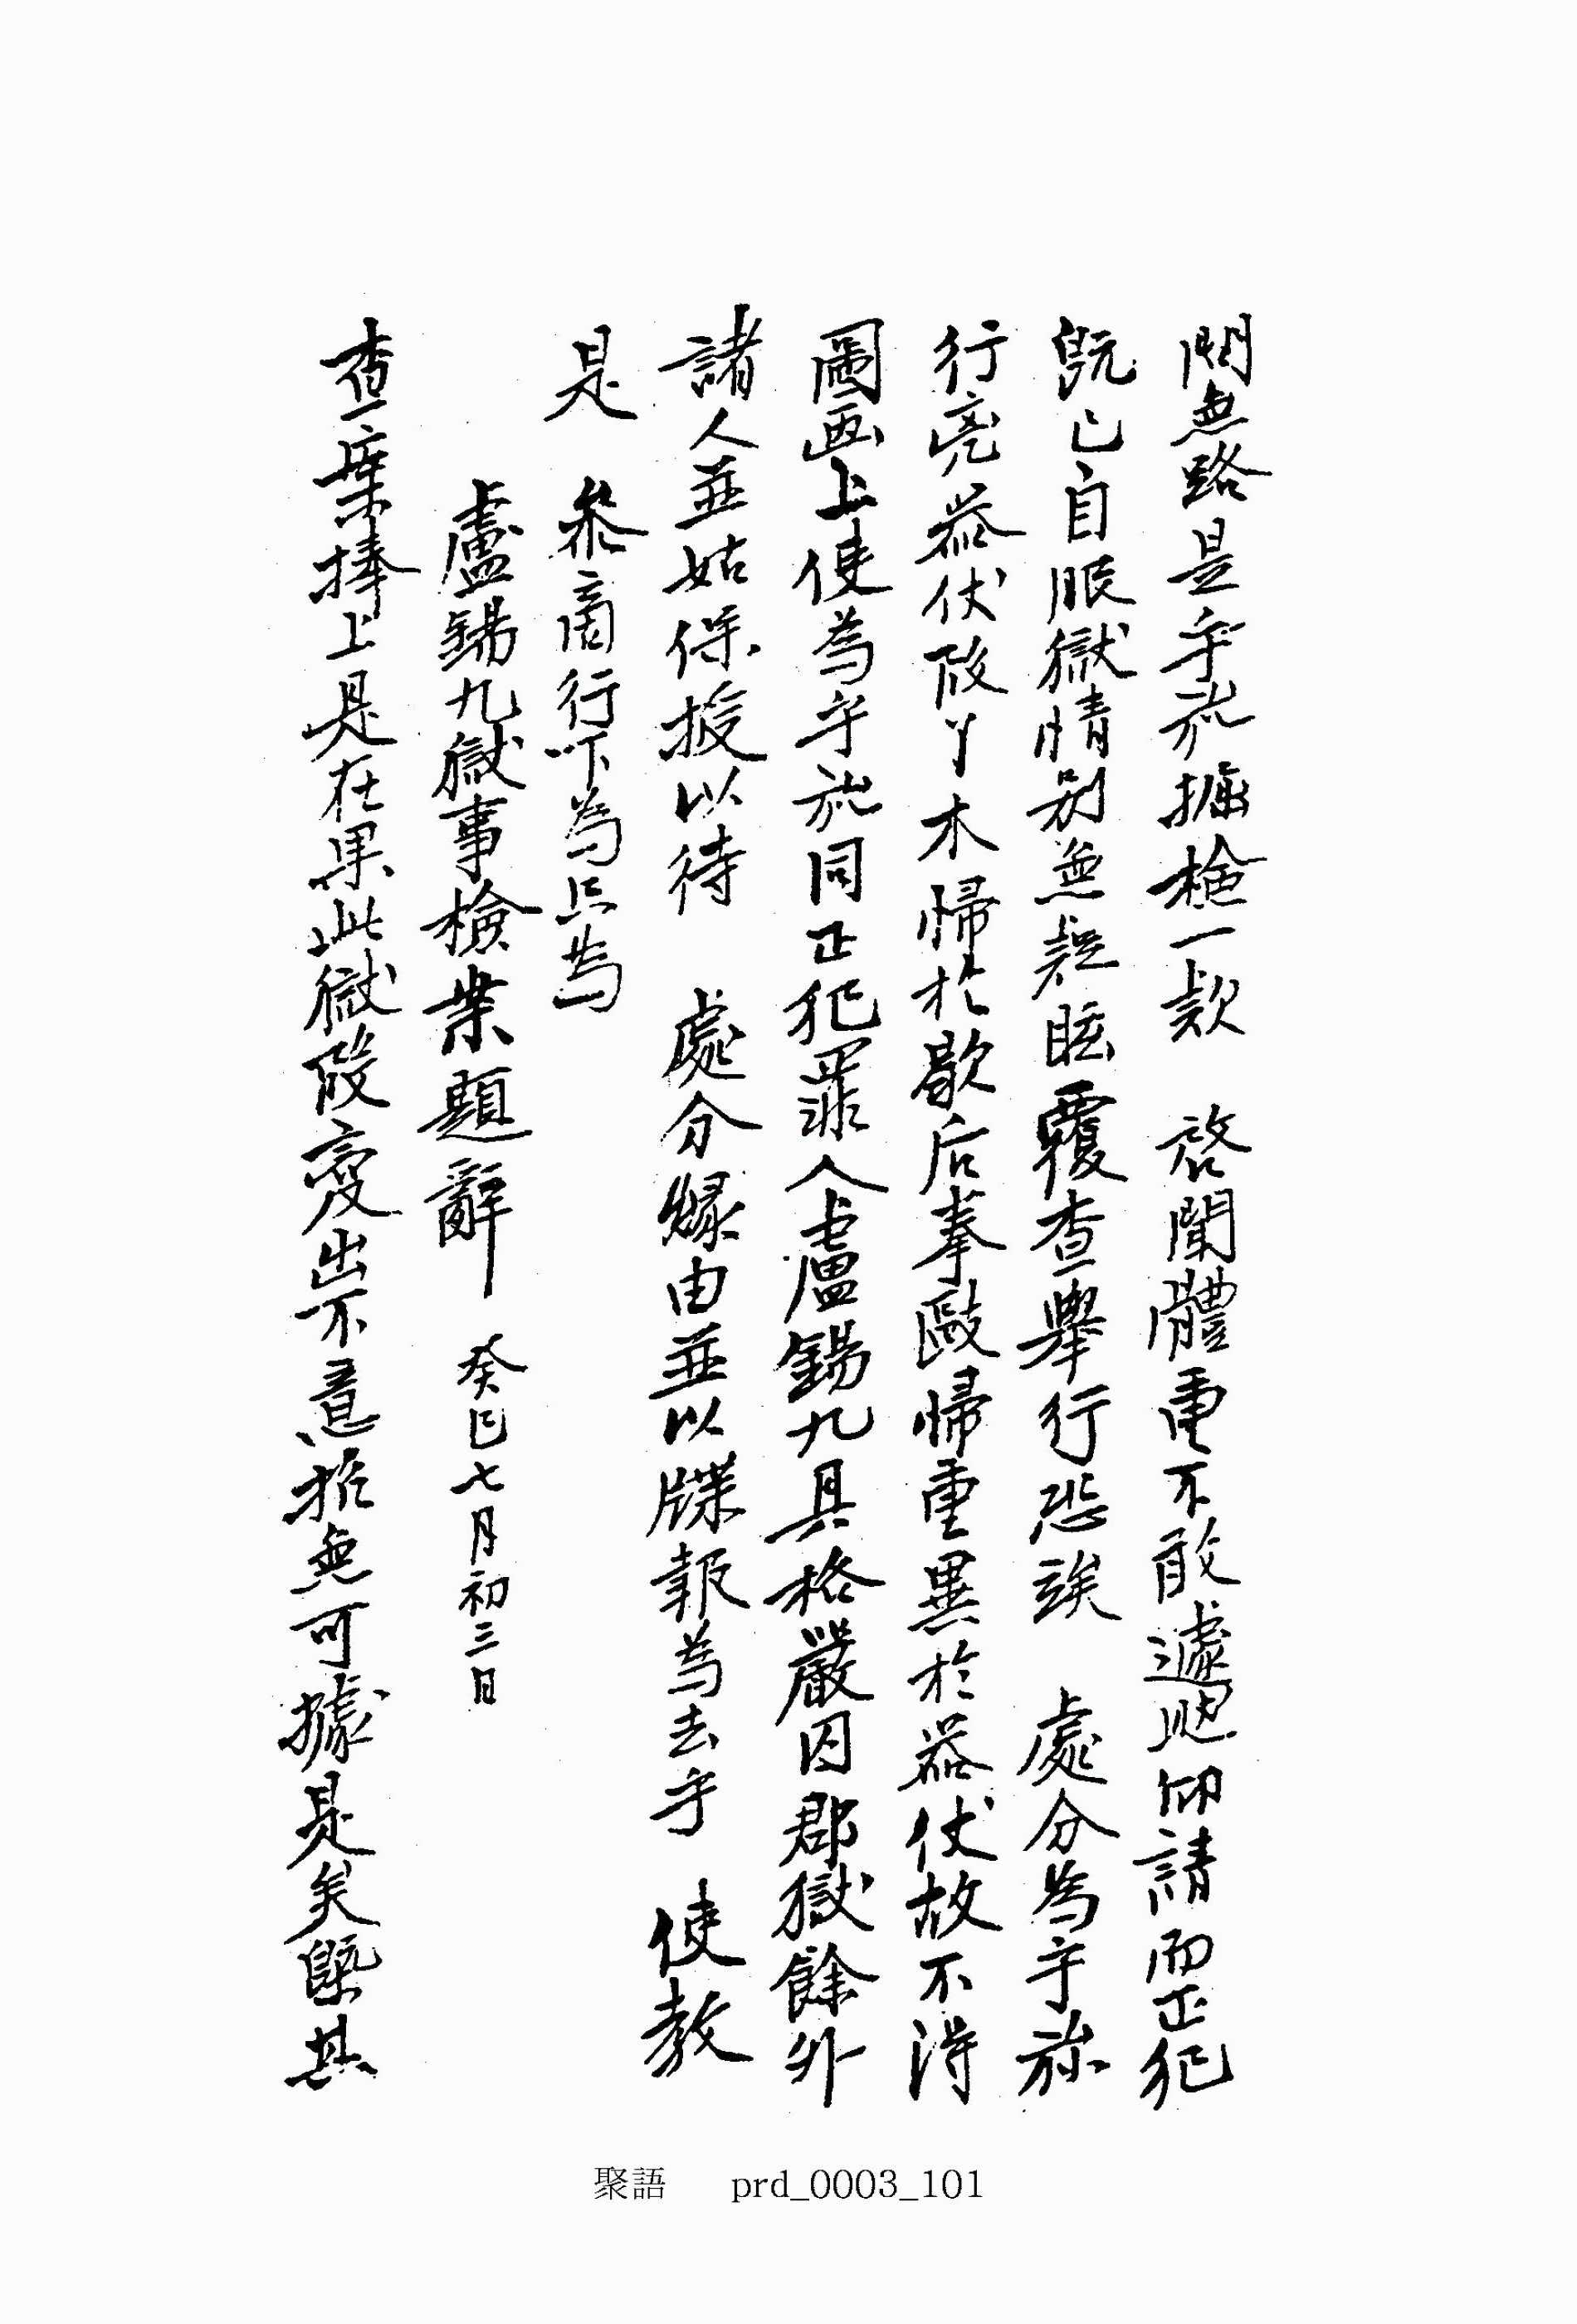 問無路是乎旀掘檢一款 啓聞體重不敢遽題仰請而正犯
旣已自服獄情別無疑眩覆查擧行恐涉 處分爲乎旀
行兇器仗段丫木歸於歇后拳毆歸重異於器仗故不得
圖画上使爲乎旀同正犯罪人盧錫九具格嚴囚郡獄餘外
諸人並姑保授以待 處分緣由並以牒報爲去乎 使敎
是 參商行下爲只爲
盧錫九獄事檢案題辭 癸巳七月初三日
查案捧上是在果此獄段變出不意推無可據是矣槩其